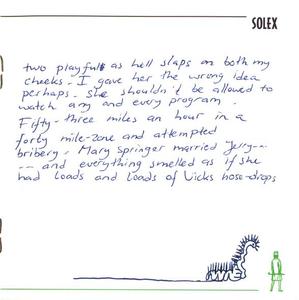 SOLEX
two playfull as hell slaps on both my
cheeks. I gave her the wrong idea
perhaps. She shouldn't be allowed to
watch any and every program.
Fifty-three miles an hour in a
forty mile-zone and attempted
bribery. Mary Springer married Jerry--
-- and everything smelled as if she
had loads and loads of Vicks nose-drops